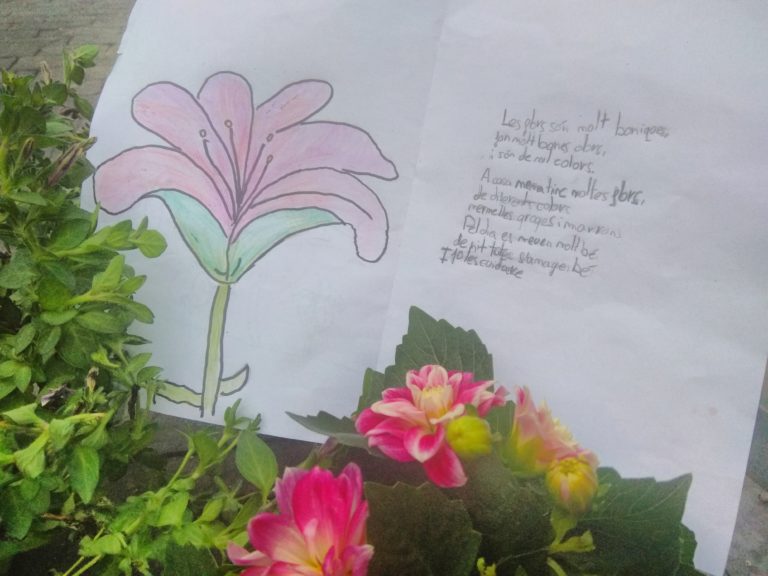 Les flors són molt boniques,
fan molt bones olors,
i són de mil colors.
A casa meva tinc moltes flors,
de diferents colors
vermelles grogues i marrons
Pel dia es meuen molt bé
de nit totes s'amaguen bé
I jo les cuidaré